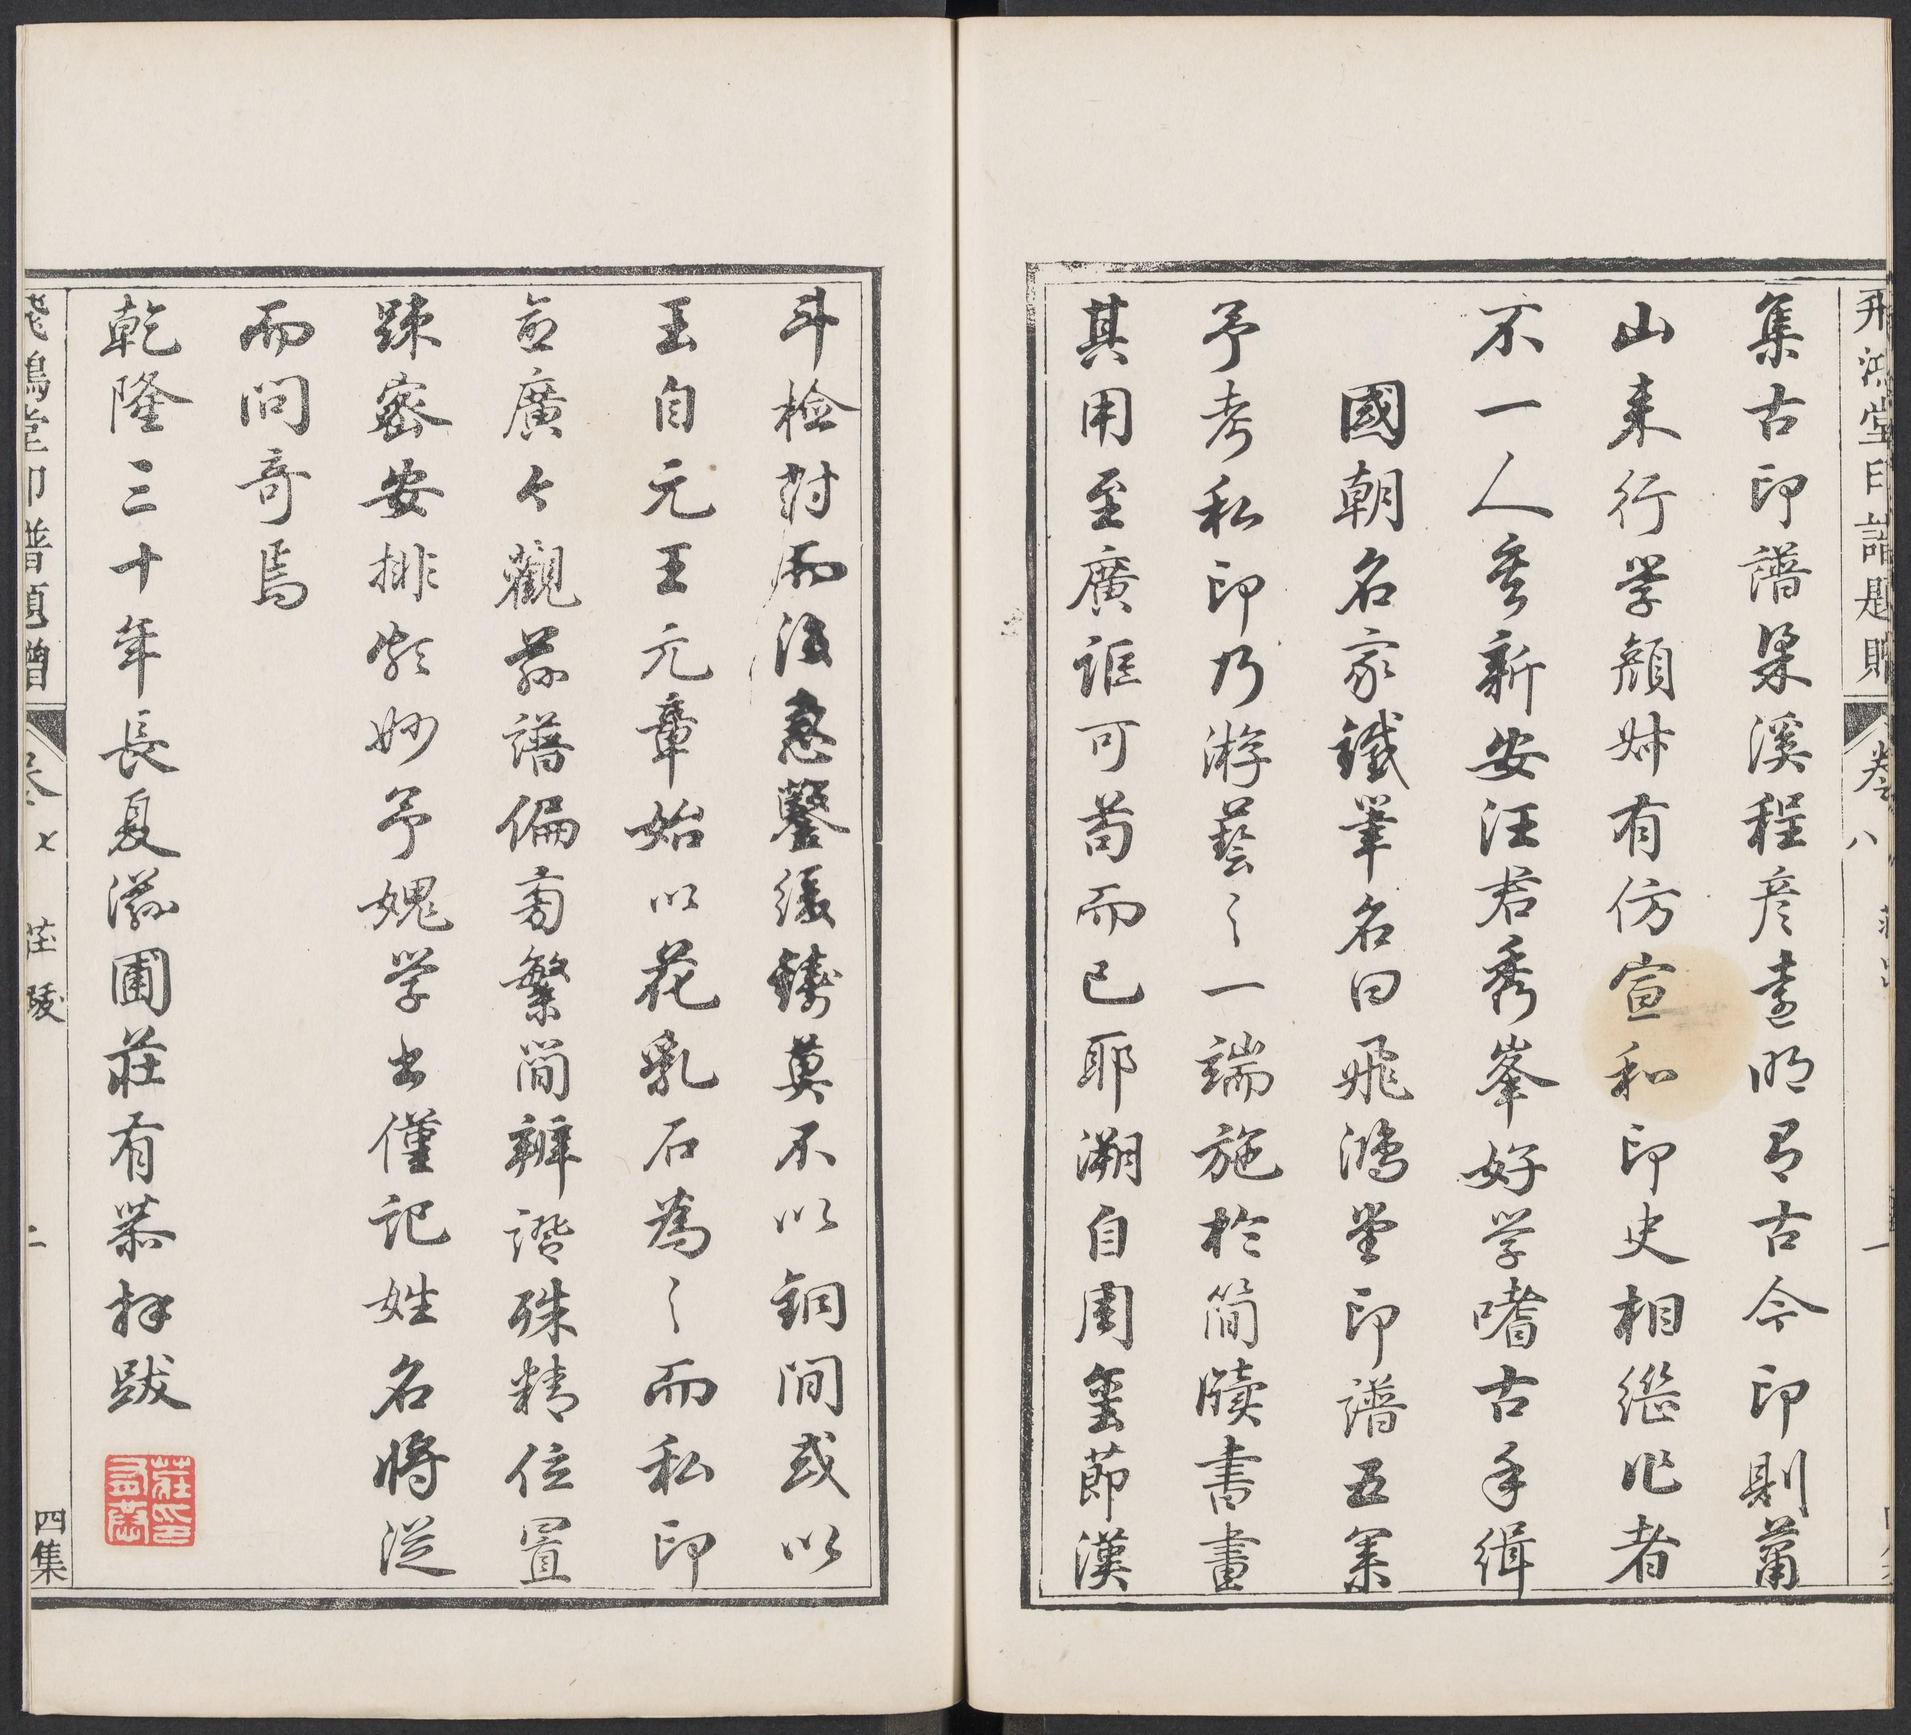 飛鴻堂印譜題贈
集古印譜梁溪程彦遠明有古今印則蕭
山来行学顏姊有仿宣和印史相繼作者
不一人矣新安汪君秀峯好学嗜古手緝
國朝名家鐵筆名曰飛鴻堂印譜五集
予考私印乃游藝之一端施於簡牘書畫
其用至廣詎可苟而已耶溯自周璽莭漢
斗检封而後急鑿緩鑄莫不以銅間或以
玉自元王元章始以花乳石為之而私印
益廣今觀茲譜偏旁繁簡辨證殊精位置
踈密安排新妙予媿学古僅記姓名將從
而問奇焉
乾隆三十年長夏滋圃莊有恭拜跋
莊印有恭
飛鴻堂印譜題贈
卷七
莊跋
二
四集